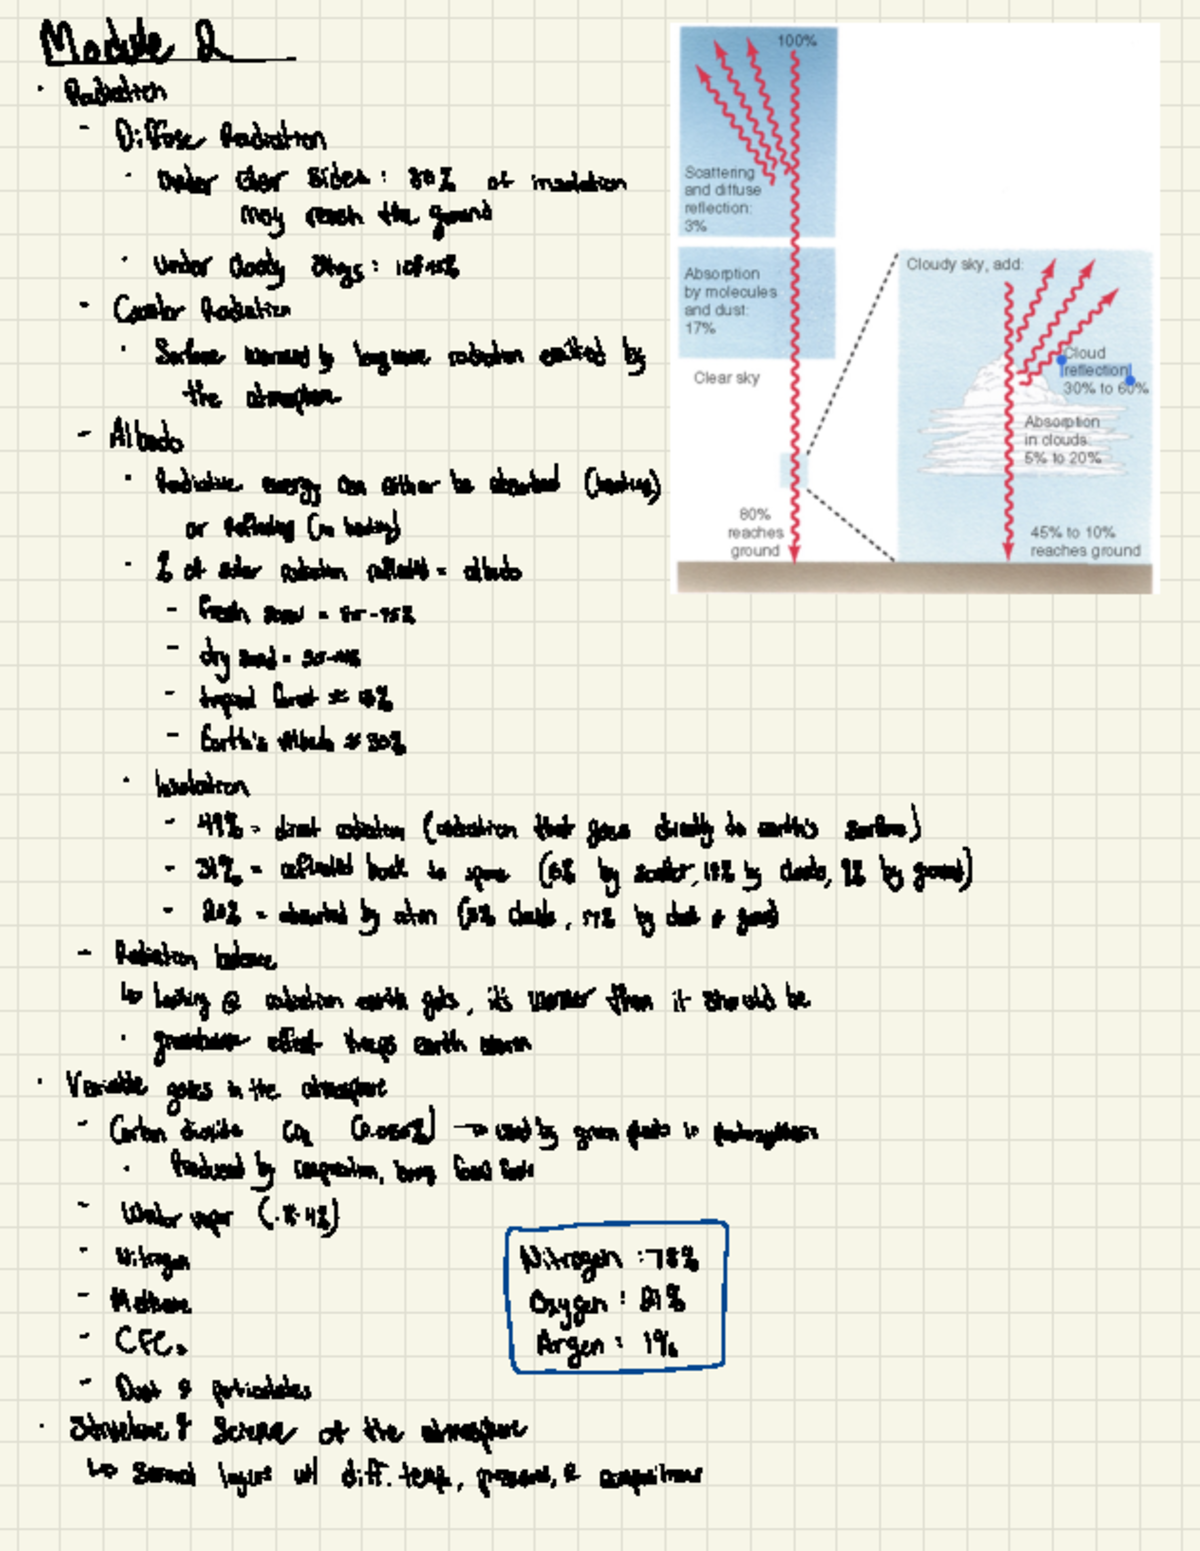 Module 2
· Radiation
- Diffuse Radiation
· Under clear skies: 80% of insolation
may reach the ground
· Under cloudy skys: 10-45%
- Counter Radiation
· Surface warmed by longwave radiation emitted by
the atmosphere
- Albedo
· Radiative energy can either be absorbed (heating)
or reflecting (no heating)
· % of solar radiation reflected = albedo
- fresh snow =
- dry sand =
- tropical forest ≈
- Earth's albedo ≈ 30%
· Insolation
- 49% = direct radiation (radiation that goes directly to earth's surface)
- 31% = reflected back to space (by scatter, by clouds, by ground)
- 20% = absorbed by atm (3% clouds, 17% by dust & gases)
- Radiation balance
↳ looking @ radiation earth gets, it's warmer than it should be
· greenhouse effect keeps earth warm
· Variable gases in the atmosphere
- Carbon dioxide CO2 → used by green plants in photosynthesis
· Produced by fossil fuels
- Water vapor
- Nitrogen
- Methane
- CFCs
- Dust & particulates
· Structure & Science of the atmosphere
↳ layers w/ diff. temp, pressures, & compositions
Nitrogen : 78%
Oxygen : 21%
Argen : 1%
100%
Scattering
and diffuse
reflection:
3%
Absorption
by molecules
and dust:
17%
Clear sky
80%
reaches
ground
Cloudy sky, add:
Cloud
reflection
30% to 60%
Absorption
in clouds:
5% to 20%
45% to 10%
reaches ground